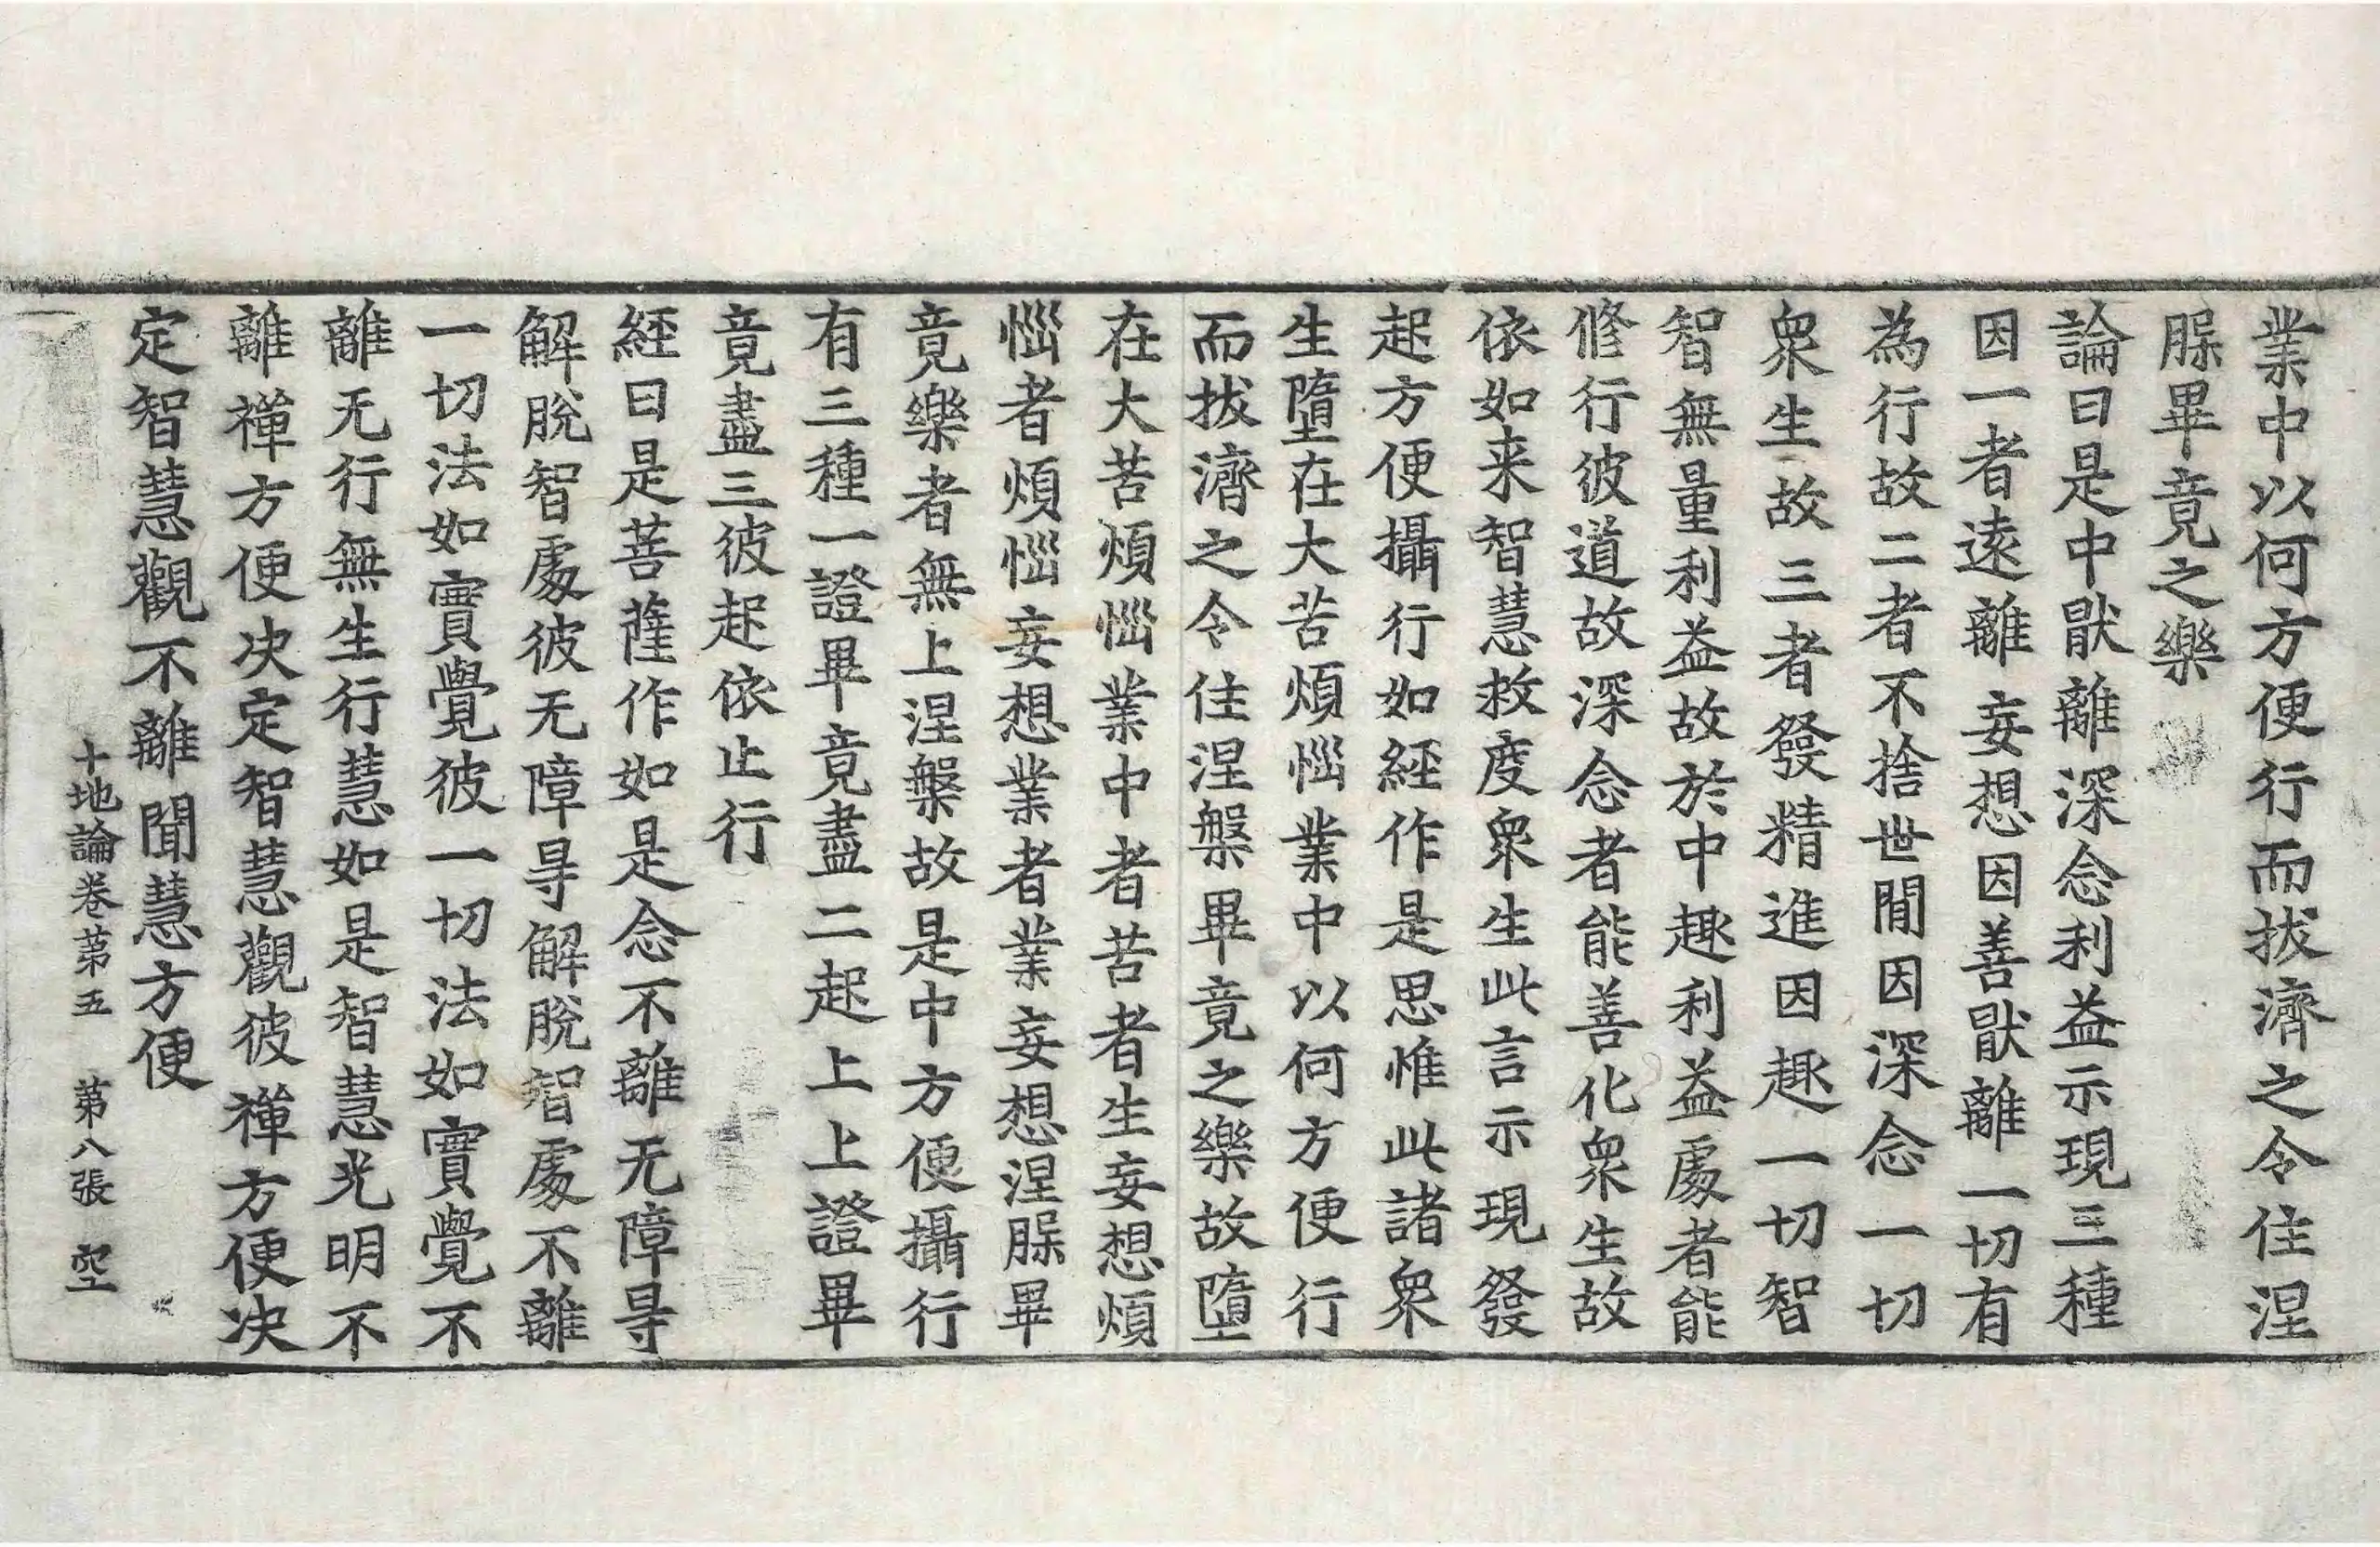 業中以何方便行而拔濟之令住涅
𦛨畢竟之樂
論曰是中猒離深念利益示現三種
因一者遠離妄想因善猒離一切有
為行故二者不捨世間因深念一切
衆生故三者發精進因趣一切智
智無量利益故於中趣利益處者能
修行彼道故深念者能善化衆生故
依如来智慧救度衆生此言示現發
起方便攝行如經作是思惟此諸衆
生墮在大苦煩惱業中以何方便行
而拔濟之令住涅槃畢竟之樂故墮
在大苦煩惱業中者苦者生妄想煩
惱者煩惱妄想業者業妄想涅𦛨畢
竟樂者無上涅槃故是中方便攝行
有三種一證畢竟盡二起上上證畢
竟盡三彼起依止行
經曰是菩薩作如是念不離无障㝵
解脫智處彼无障㝵解脫智處不離
一切法如實覺彼一切法如實覺不
離无行無生行慧如是智慧光明不
離禪方便决定智慧觀彼禪方便决
定智慧觀不離聞慧方便
十地論卷苐五 苐八張 空